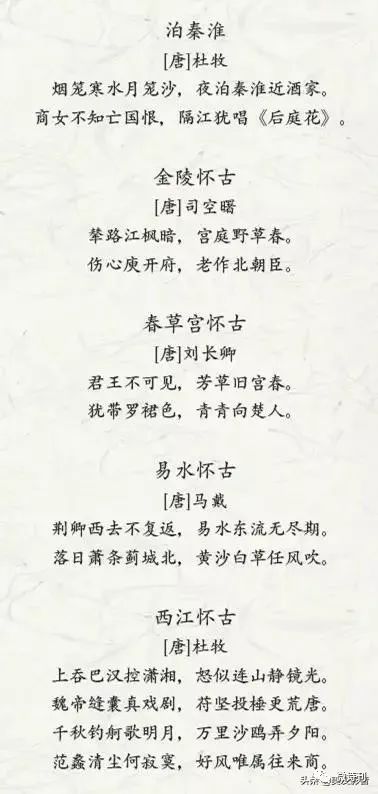 泊秦淮
[唐]杜牧
烟笼寒水月笼沙，夜泊秦淮近酒家。
商女不知亡国恨，隔江犹唱《后庭花》。
金陵怀古
[唐]司空曙
辇路江枫暗，宫庭野草春。
伤心庾开府，老作北朝臣。
春草宫怀古
[唐]刘长卿
君王不可见，芳草旧宫春。
犹带罗裙色，青青向楚人。
易水怀古
[唐]马戴
荆卿西去不复返，易水东流无尽期。
落日萧条蓟城北，黄沙白草任风吹。
西江怀古
[唐]杜牧
上吞巴汉控潇湘，怒似连山静镜光。
魏帝缝囊真戏剧，苻坚投棰更荒唐。
千秋钓舸歌明月，万里沙鸥弄夕阳。
范蠡清尘何寂寞，好风唯属往来商。